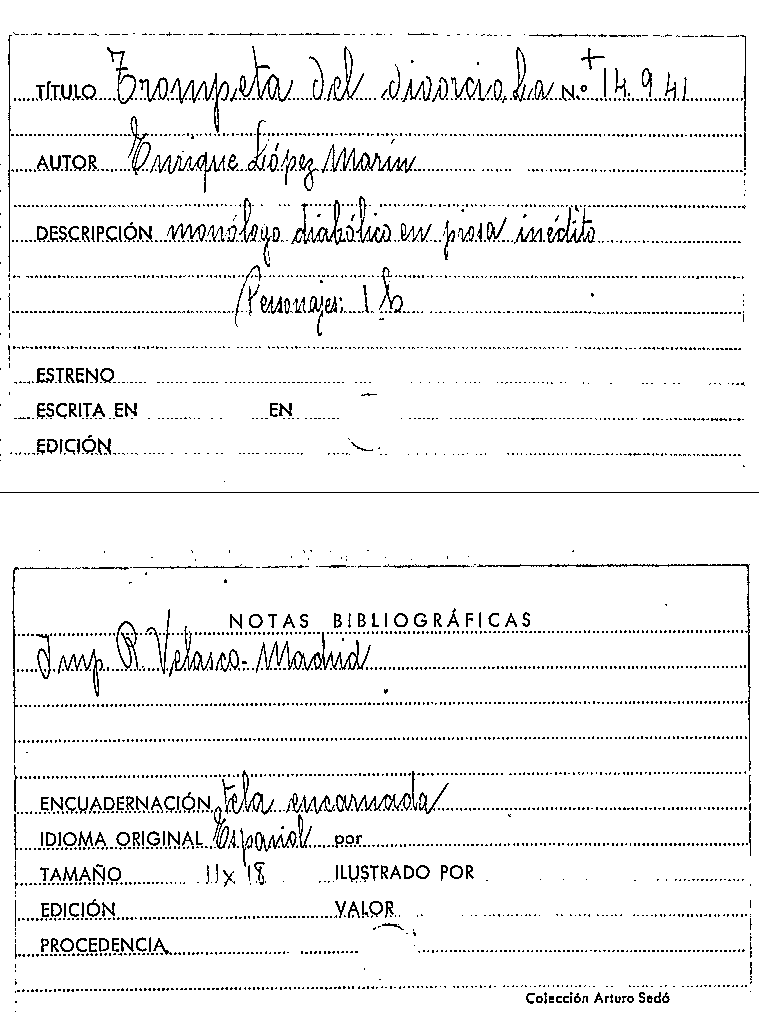 TÍTULO Trompeta del divorcio, La N.º + 14.941
AUTOR Enrique López Marín
DESCRIPCIÓN monólogo diabólico en prosa inédito
Personajes: 1 h
ESTRENO
ESCRITA EN EN
EDICIÓN
NOTAS BIBLIOGRÁFICAS
Imp. R Velasco- Madrid
ENCUADERNACIÓN tela encarnada
IDIOMA ORIGINAL Español por
TAMAÑO 11 x 18 ILUSTRADO POR
EDICIÓN VALOR
PROCEDENCIA
Colección Arturo Sedó